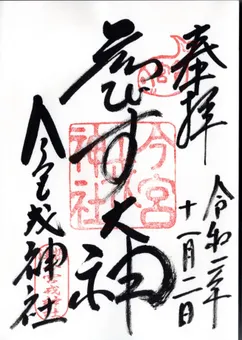 奉拝
令和二年
十一月二日
ゑびす大神
今宮
神社
今宮戎神社